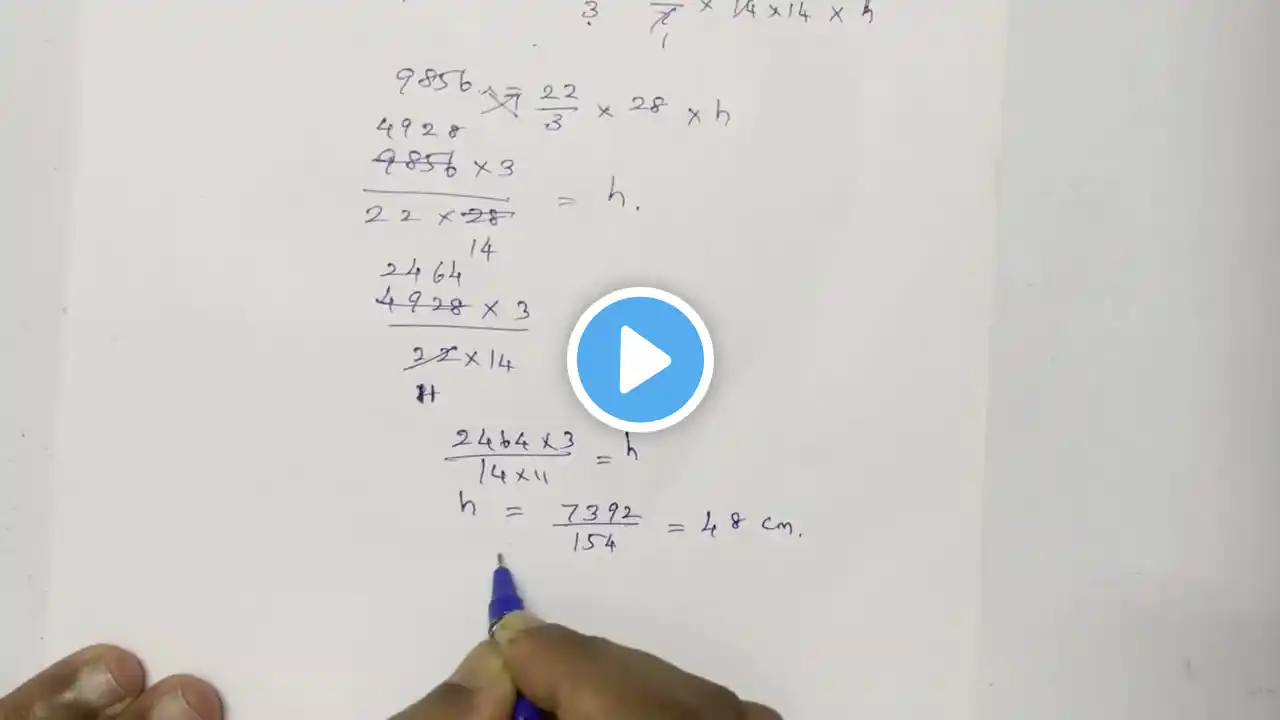 3 7 × 14 × 14 × h
1
9856 = 22/3 × 28 × h
4928
9856 × 3
22 × 28 = h.
14
2464
4928 × 3
22 × 14
11
2464 × 3 / 14 × 11 = h
h = 7392 / 154 = 48 cm.